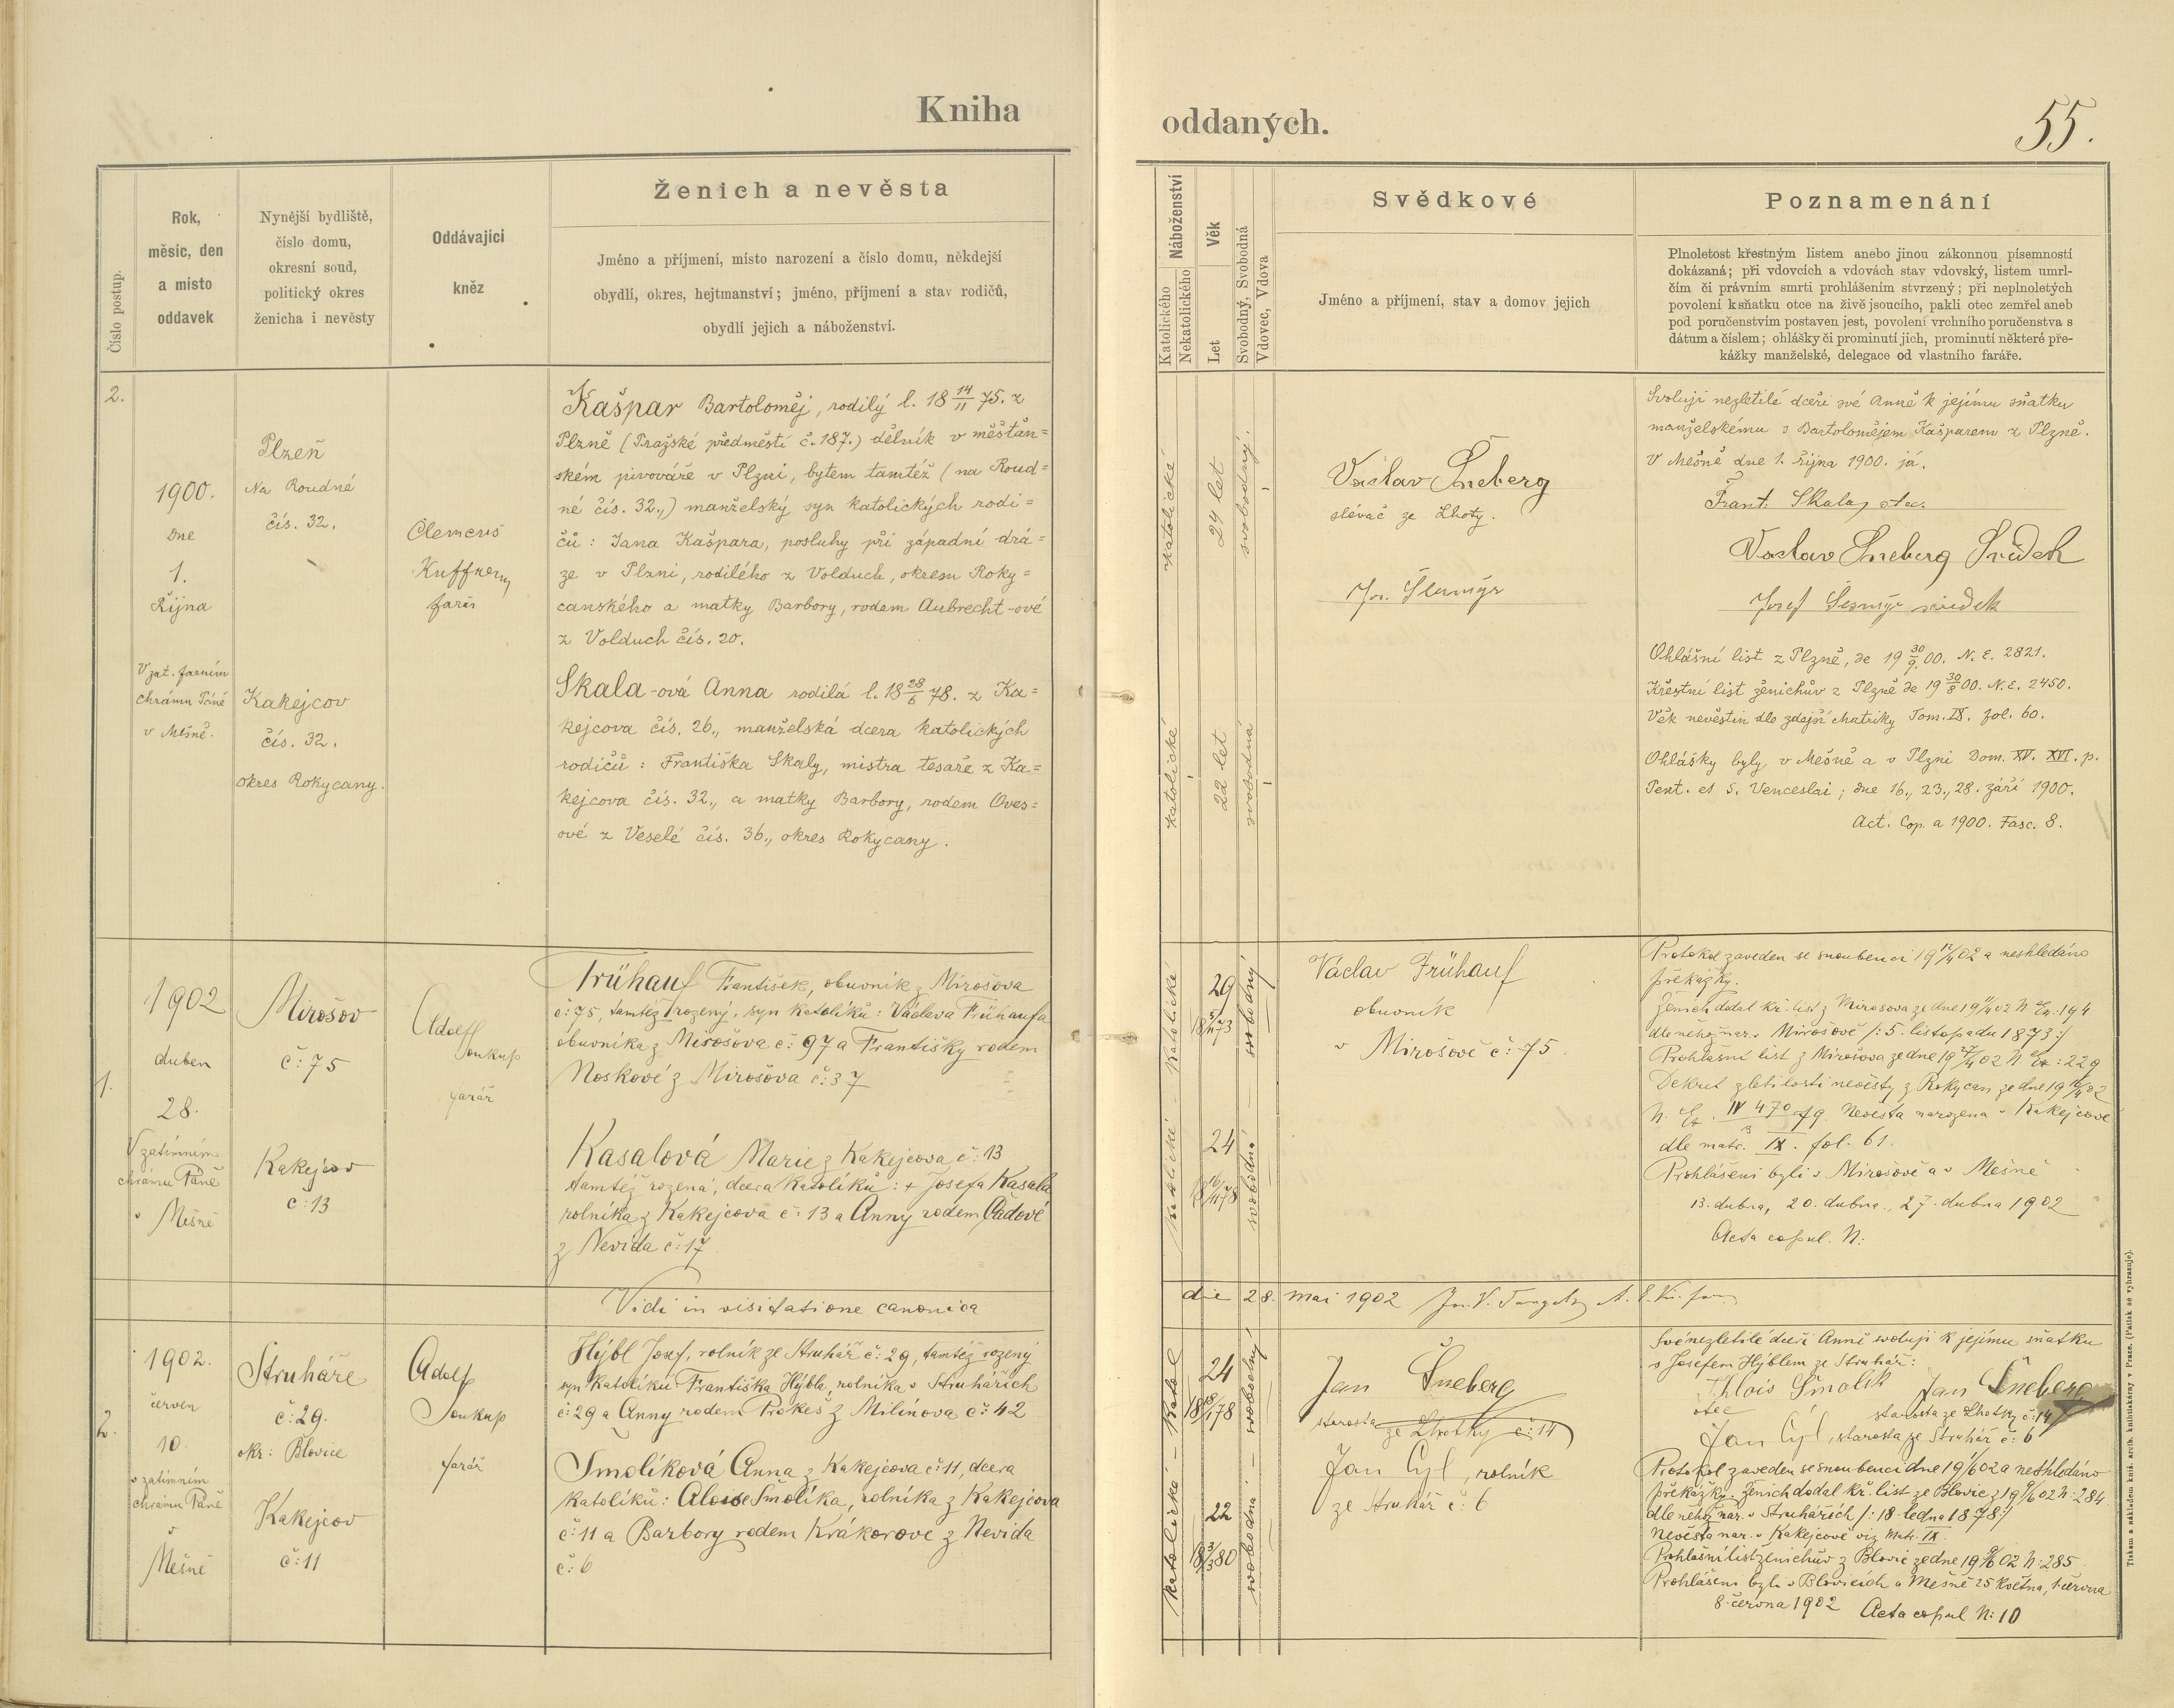 Kniha
oddaných.
55.
Číslo postup.
Rok,
měsíc, den
a místo
oddavek
Nynější bydliště,
číslo domu,
okresní soud,
politický okres
ženicha i nevěsty
Oddávající
kněz
Ženich a nevěsta
Jméno a příjmení, místo narození a číslo domu, někdejší
obydlí, okres, hejtmanství; jméno, příjmení a stav rodičů,
obydlí jejich a náboženství.
Náboženství
Katolického
Nekatolického
Věk
Let
Svobodný, Svobodná
Vdovec, Vdova
Svědkové
Jméno a příjmení, stav a domov jejich
Poznamenání
Plnoletost křestným listem anebo jinou zákonnou písemností
dokázaná; při vdovcích a vdovách stav vdovský, listem umrl-
čím či právním smrti prohlášením stvrzený; při neplnoletých
povolení k sňatku otce na živě jsoucího, pakli otec zemřel aneb
pod poručenstvím postaven jest, povolení vrchního poručenstva s
dátum a číslem; ohlášky či prominutí jich, prominutí některé pře-
kážky manželské, delegace od vlastního faráře.
2.
1900.
Dne
1.
Října
V zat. farním
chrámu Páně
v Měšně.
Plzeň
Na Roudné
čís. 32.
Kakejcov
čís. 32.
okres Rokycany.
Clemens
Kuffner
farář
Kašpar Bartoloměj, rodilý l. 18 14/11 75. z
Plzně (Pražské předměstí č. 187.) dělník v měšťan=
ském pivováře v Plzni, bytem tamtéž (na Roud=
né čís. 32.,) manželský syn katolických rodi=
čů: Jana Kašpara, posluhy při západní drá=
ze v Plzni, rodilého z Volduch, okresu Roky=
canského a matky Barbory, rodem Aubrecht-ové
z Volduch čís. 20.
Skala-ová Anna rodilá l. 18 28/6 78. z Ka=
kejcova čís. 26., manželská dcera katolických
rodičů: Františka Skaly, mistra tesaře z Ka=
kejcova čís. 32., a matky Barbory, rodem Oves=
ové z Veselé čís. 36., okres Rokycany.
katolické
24 let
svobodný.
katolické
22 let
svobodná
Václav Šneberg
slévač ze Lhoty.
Jos. Šlemýr
Svoluji nezletilé dceři své Anně k jejímu sňatku
manželskému s Bartolomějem Kašparem z Plzně.
V Mešně dne 1. října 1900. já.
Frant. Skala, otec.
Václav Šneberg Svědek
Josef svědek
Ohlášní list z Plzně, de 19 30/9 00. N. E. 2821.
Křestní list ženichův z Plzně de 19 30/8 00. N. E. 2450.
Věk nevěstin dle zdejší matriky Tom. IX. fol. 60.
Ohlášky byly v Mešně a v Plzni Dom. XV. XVI. p.
Pent. et S. Venceslai; dne 16., 23., 28. září 1900.
Act. Cop. a 1900. Fasc. 8.
1.
1902
duben
28.
V zatímním
chrámu Páně
v Mešně
Mirošov
č: 75
Kakejcov
č: 13
Adolf
Soukup
farář
Frühauf František, obuvník z Mirošova
č: 75, tamtéž rozený, syn katolíků: Václava Frühaufa
obuvníka z Mirošova č: 97 a Františky rodem
Noskové z Mirošova č: 37
Kasalová Marie z Kakejcova č: 13
tamtéž rozená, dcera katolíků: + Josefa Kasala
rolníka z Kakejcova č: 13 a Anny rodem Čadové
z Nevida č: 17
katolické - katolické
29
18 5/11 73
svobodný
24
18 16/11 78
svobodná
Václav Frühauf
obuvník
v Mirošově č: 75
Protokol zaveden se snoubenci 19 12/4 02 a neshledáno
překážky.
dle něhož nar. v Mirošově /: 5. listopadu 1873:/
Prohlášní list z Mirošova ze dne 19 27/4 02 N. Ex: 229
Dekret zletilosti nevěsty z Rokycan ze dne
Nevěsta narozena v Kakejcově
dle matr. IX. fol. 61.
Prohlášeni byli v Mirošově a v Mešně
13. dubna, 20. dubna., 27. dubna 1902
Acta copul. N:
Vidi in visitatione canonica
die 28. mai 1902
2.
1902.
červen
10.
v zatímním
chrámu Páně
v
Mešně
Struhaře
č: 29.
okr: Blovice
Kakejcov
č: 11
Adolf
Soukup
farář
Hýbl Josef, rolník ze Struhař č: 29, tamtéž rozený
syn katolíků Františka Hýbla, rolníka v Struhařích
č: 29 a Anny rodem Prokeš z Milínova č: 42
Smolíková Anna z Kakejcova č: 11, dcera
katolíků: Aloise Smolíka, rolníka z Kakejcova
č: 11 a Barbory rodem Krákorové z Nevida
č: 6
katolické - katol
24
18 18/1 78
svobodný
22
18 3/3 80
svobodná
Jan Šneberg
starosta ze Lhotky č: 14
Jan Cýl, rolník
ze Struhař č: 6
Své nezletilé dceři Anně svoluji k jejímu sňatku
s Josefem Hýblem ze Struhař:
Alois Smolík Jan Šneberg
otec starosta ze Lhotky č: 14
Jan Cýl, starosta ze Struhař č: 6
Protokol zaveden se snoubenci dne 19 1/6 02 a neshledáno
překážky. Ženich dodal kř. list ze Blovic z 19 9/6 02 N: 284
dle něhož nar. v Struhařích /: 18. ledna 1878:/
Nevěsta nar. v Kakejcově viz matr. IX.
Prohlášní list ženichův z Blovic ze dne 19 9/6 02 N: 285
Prohlášeni byli v Blovicích a Mešně 25 května, 1. června
8. června 1902 Acta copul N: 10
Tiskem a nákladem kníž. arcib. knihtiskárny v Praze. (Patisk se vyhrazuje).